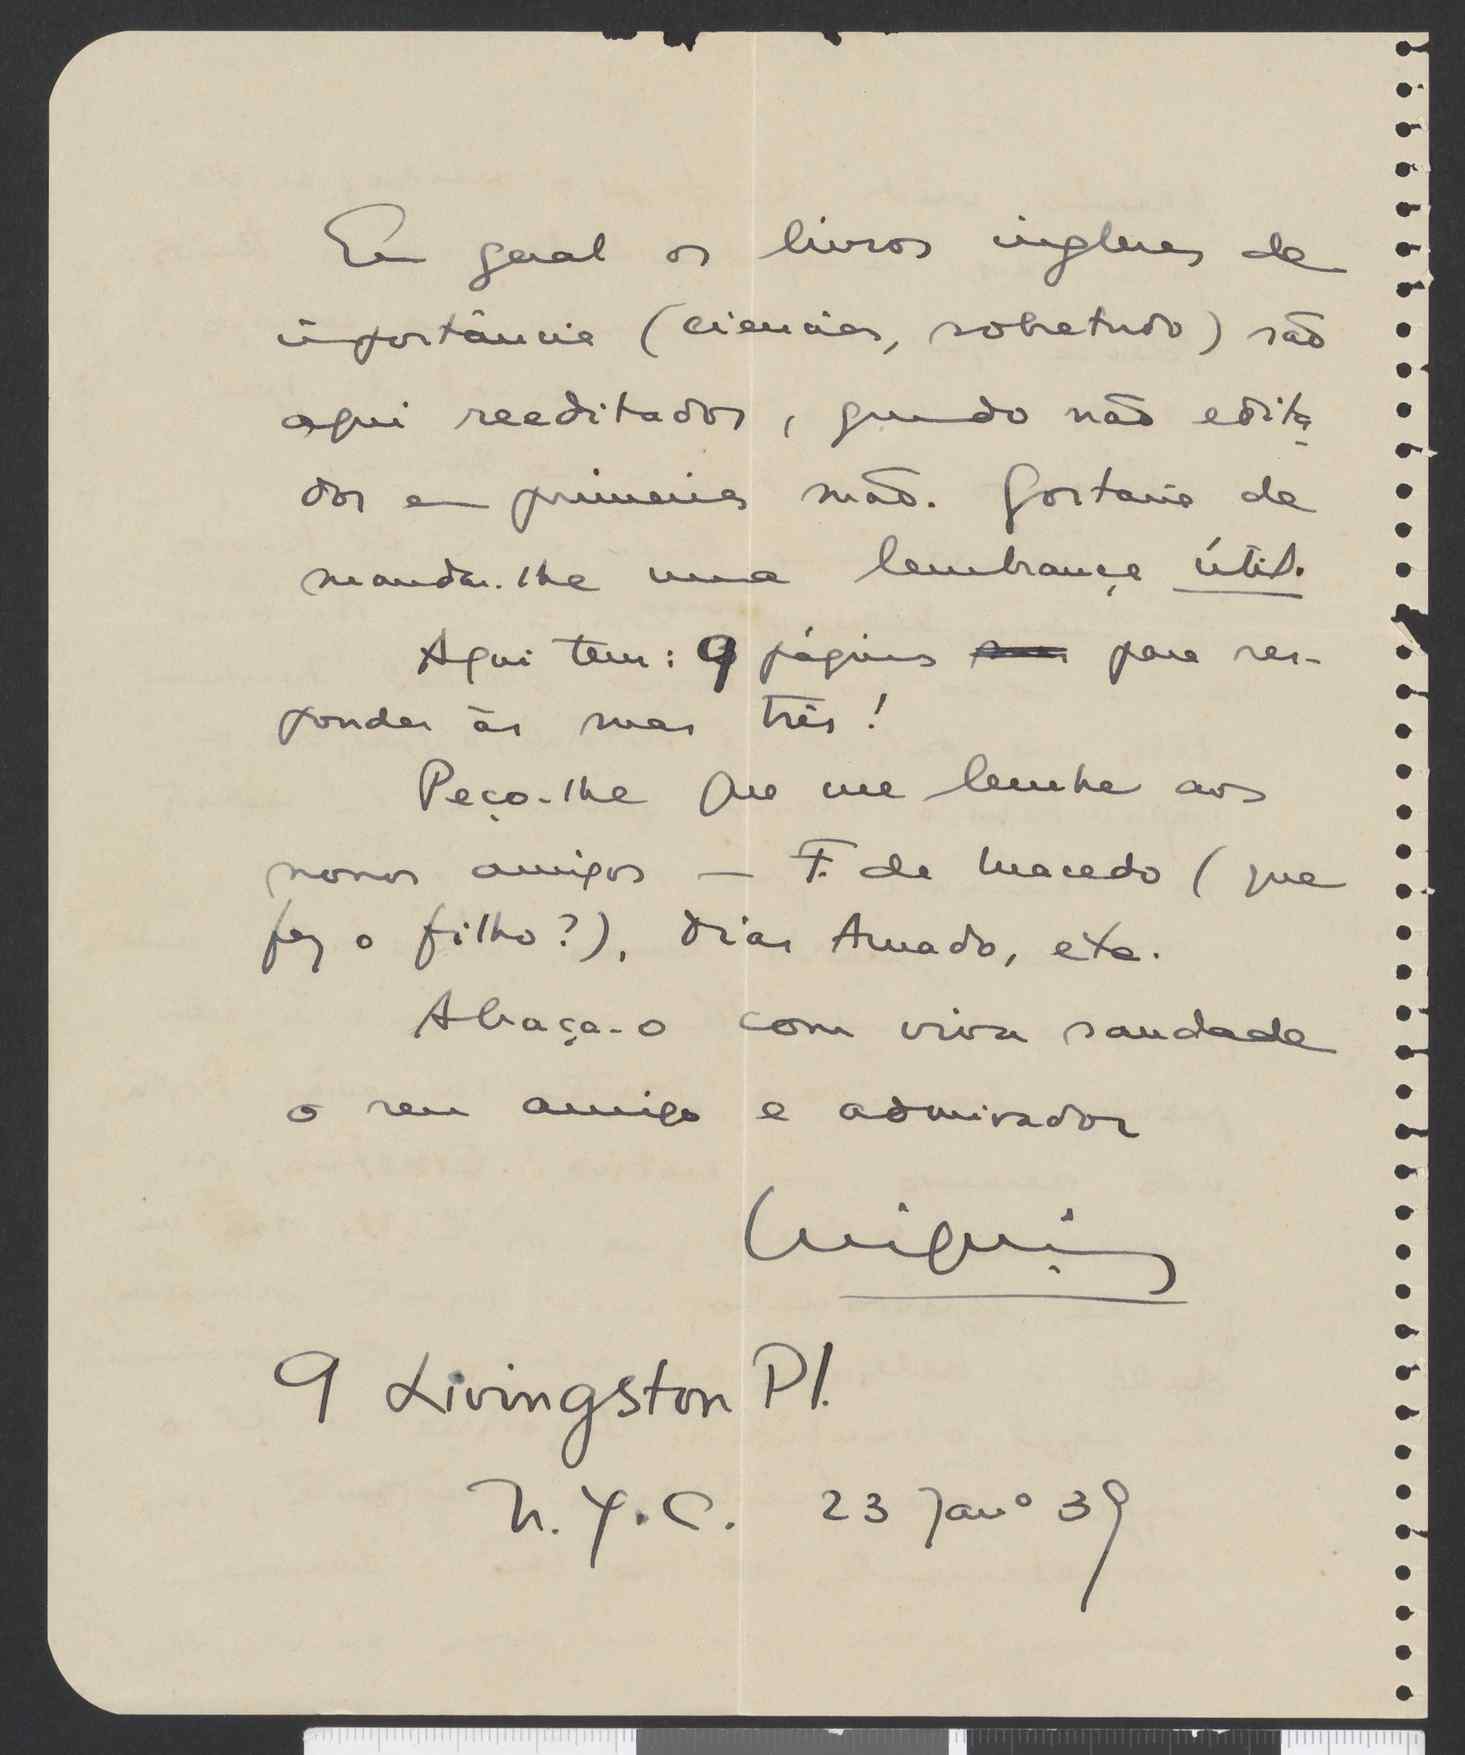 Em geral os livros ingleses de
importância (ciencias, sobretudo) são
aqui reeditados, quando não edita
dos em primeira mão. Gostaria de
mandar-lhe uma lembrança útil.
Aqui tem: 9 páginas para res-
ponder às suas três!
Peço-lhe que me lembre aos
nossos amigos — F. de Macedo (que
fez o filho?), Dias Amado, etc.
Abraça-o com viva saudade
o seu amigo e admirador
Migueis
9 Livingston Pl.
N.Y.C. 23 Janº 39